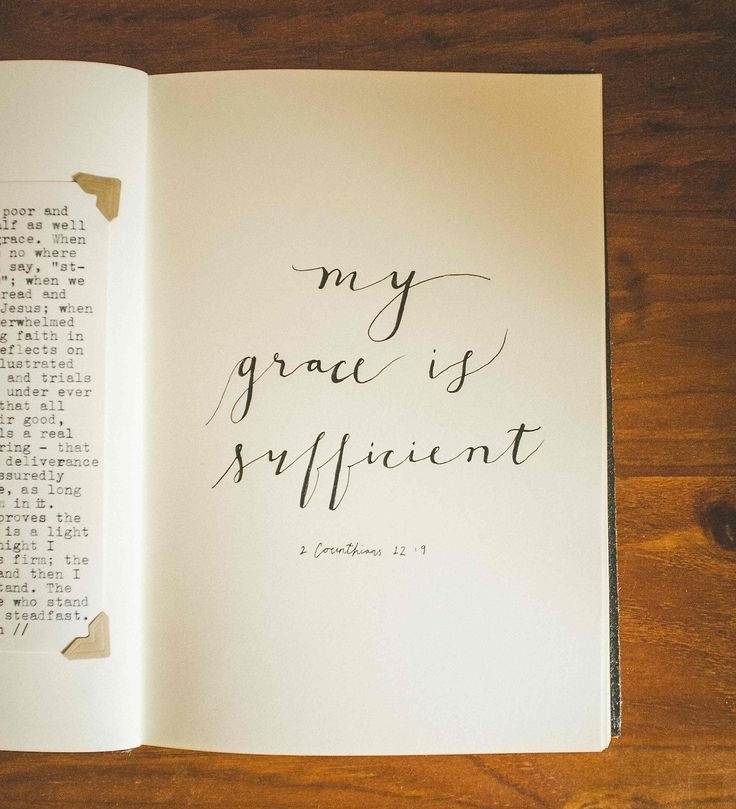 poor and
as well
grace. When
no where
say, "st-
"; when we
read and
Jesus; when
g faith in
on
and trials
under ever
that all
good,
ls a real
ring - that
deliverance
e, as long
in it.
the
is a light
I
s firm; the
and then I
The
who stand
steadfast.
//
my
grace is
sufficient
2 Corinthians 12:9